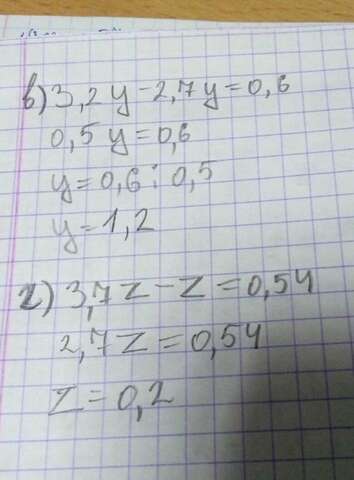 в) 3,2y - 2,7y = 0,6
0,5y = 0,6
y = 0,6 : 0,5
y = 1,2
г) 3,7z - z = 0,54
2,7z = 0,54
z = 0,2